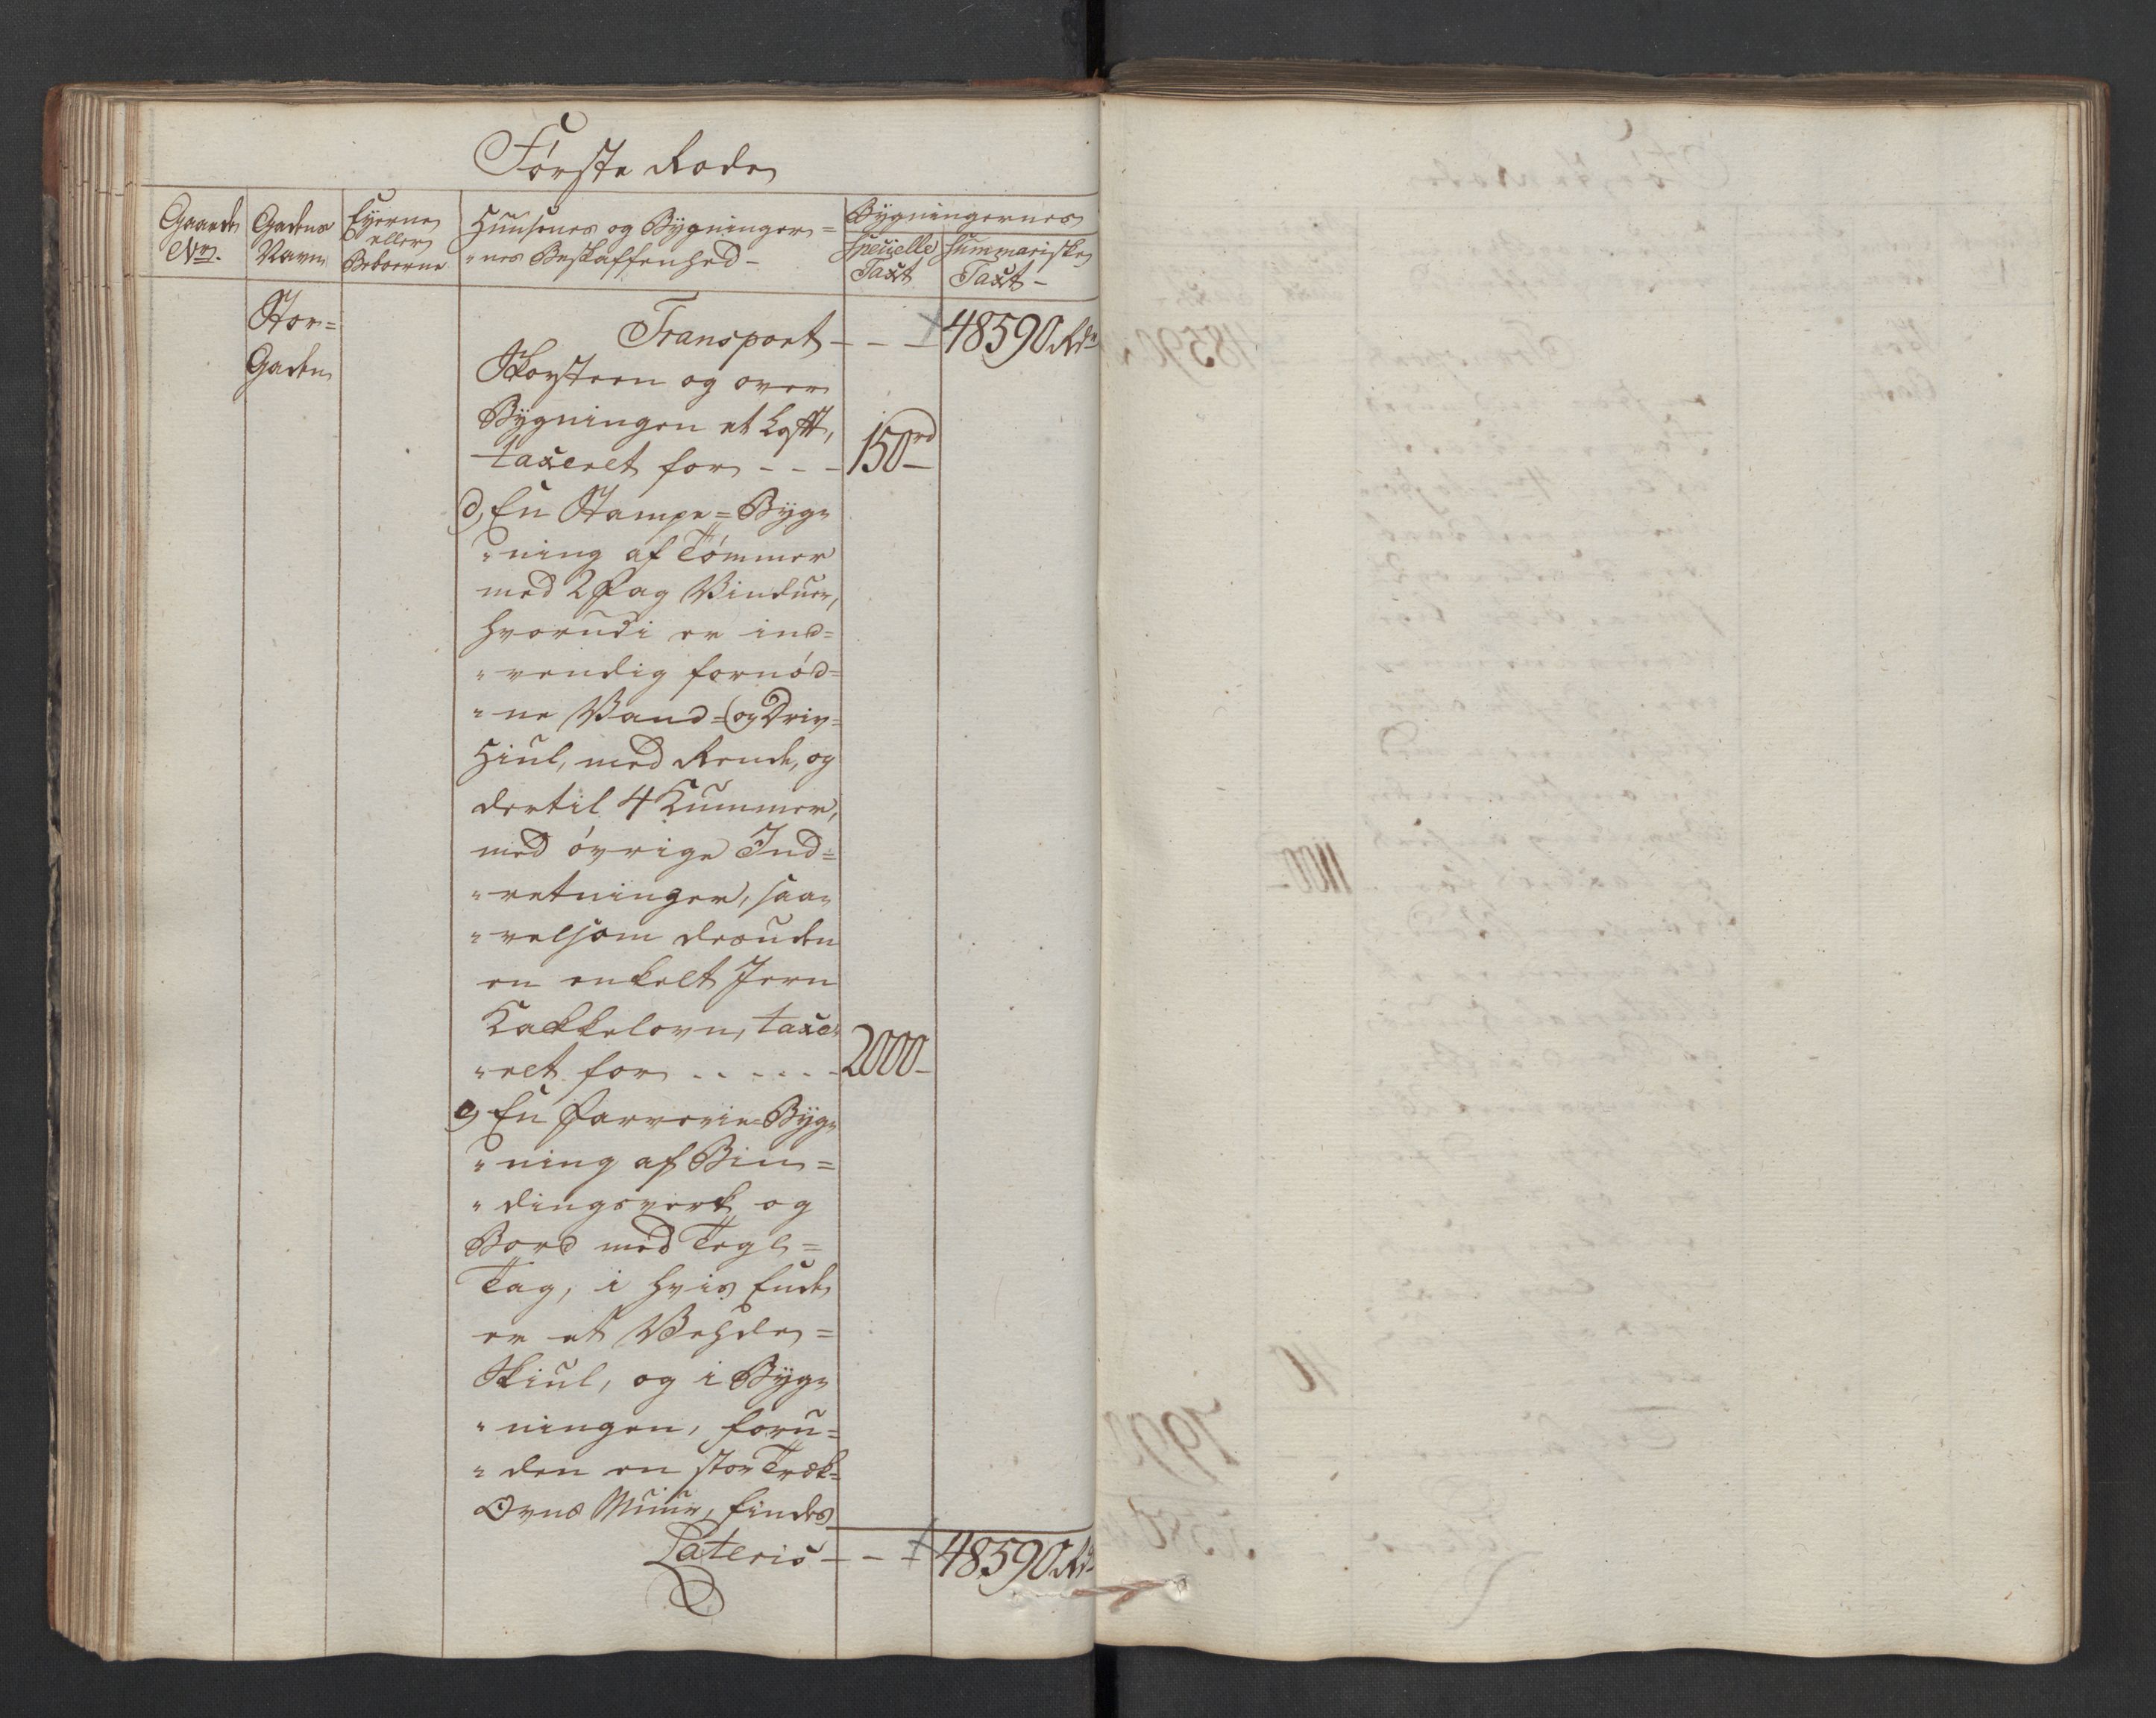 Første Rode
Gaardens
No.
Gadens
Navn
Eyerne
eller
Beboerne
Huusenes og Bygninger=
"nes Beskaffenhed -
Bygningernes
Specielle
Taxt
Summariske
Taxt -
Stor=
Gaden
Transport - - - 48590 Rdr
Skorsteen og over
Bygningen et Loft,
taxeret for - - - 150 rd
d, En Stampe=Byg=
"ning af Tømmer
med 2 Fag Vinduer,
hvorudi er ind=
"vendig fornød=
"ne Vand= og Driv=
Hiul, med Rende, og
dertil 4 Kummer,
med øvrige Ind=
"retninger, saa=
"velsom desuden
en enkelt Jern
Kakkelovn, taxe=
"ret for . . . . . - 2000 -
e, En Farverie=Byg=
"ning af Bin=
"dingsverk og
Bord med Tegl=
Tag, i hvis Ende
er et Vehde=
Skiul, og i Byg=
"ningen, foru=
"den en stor Træk=
Ovns Muur, findes
Lateris - - - 48590 Rdr